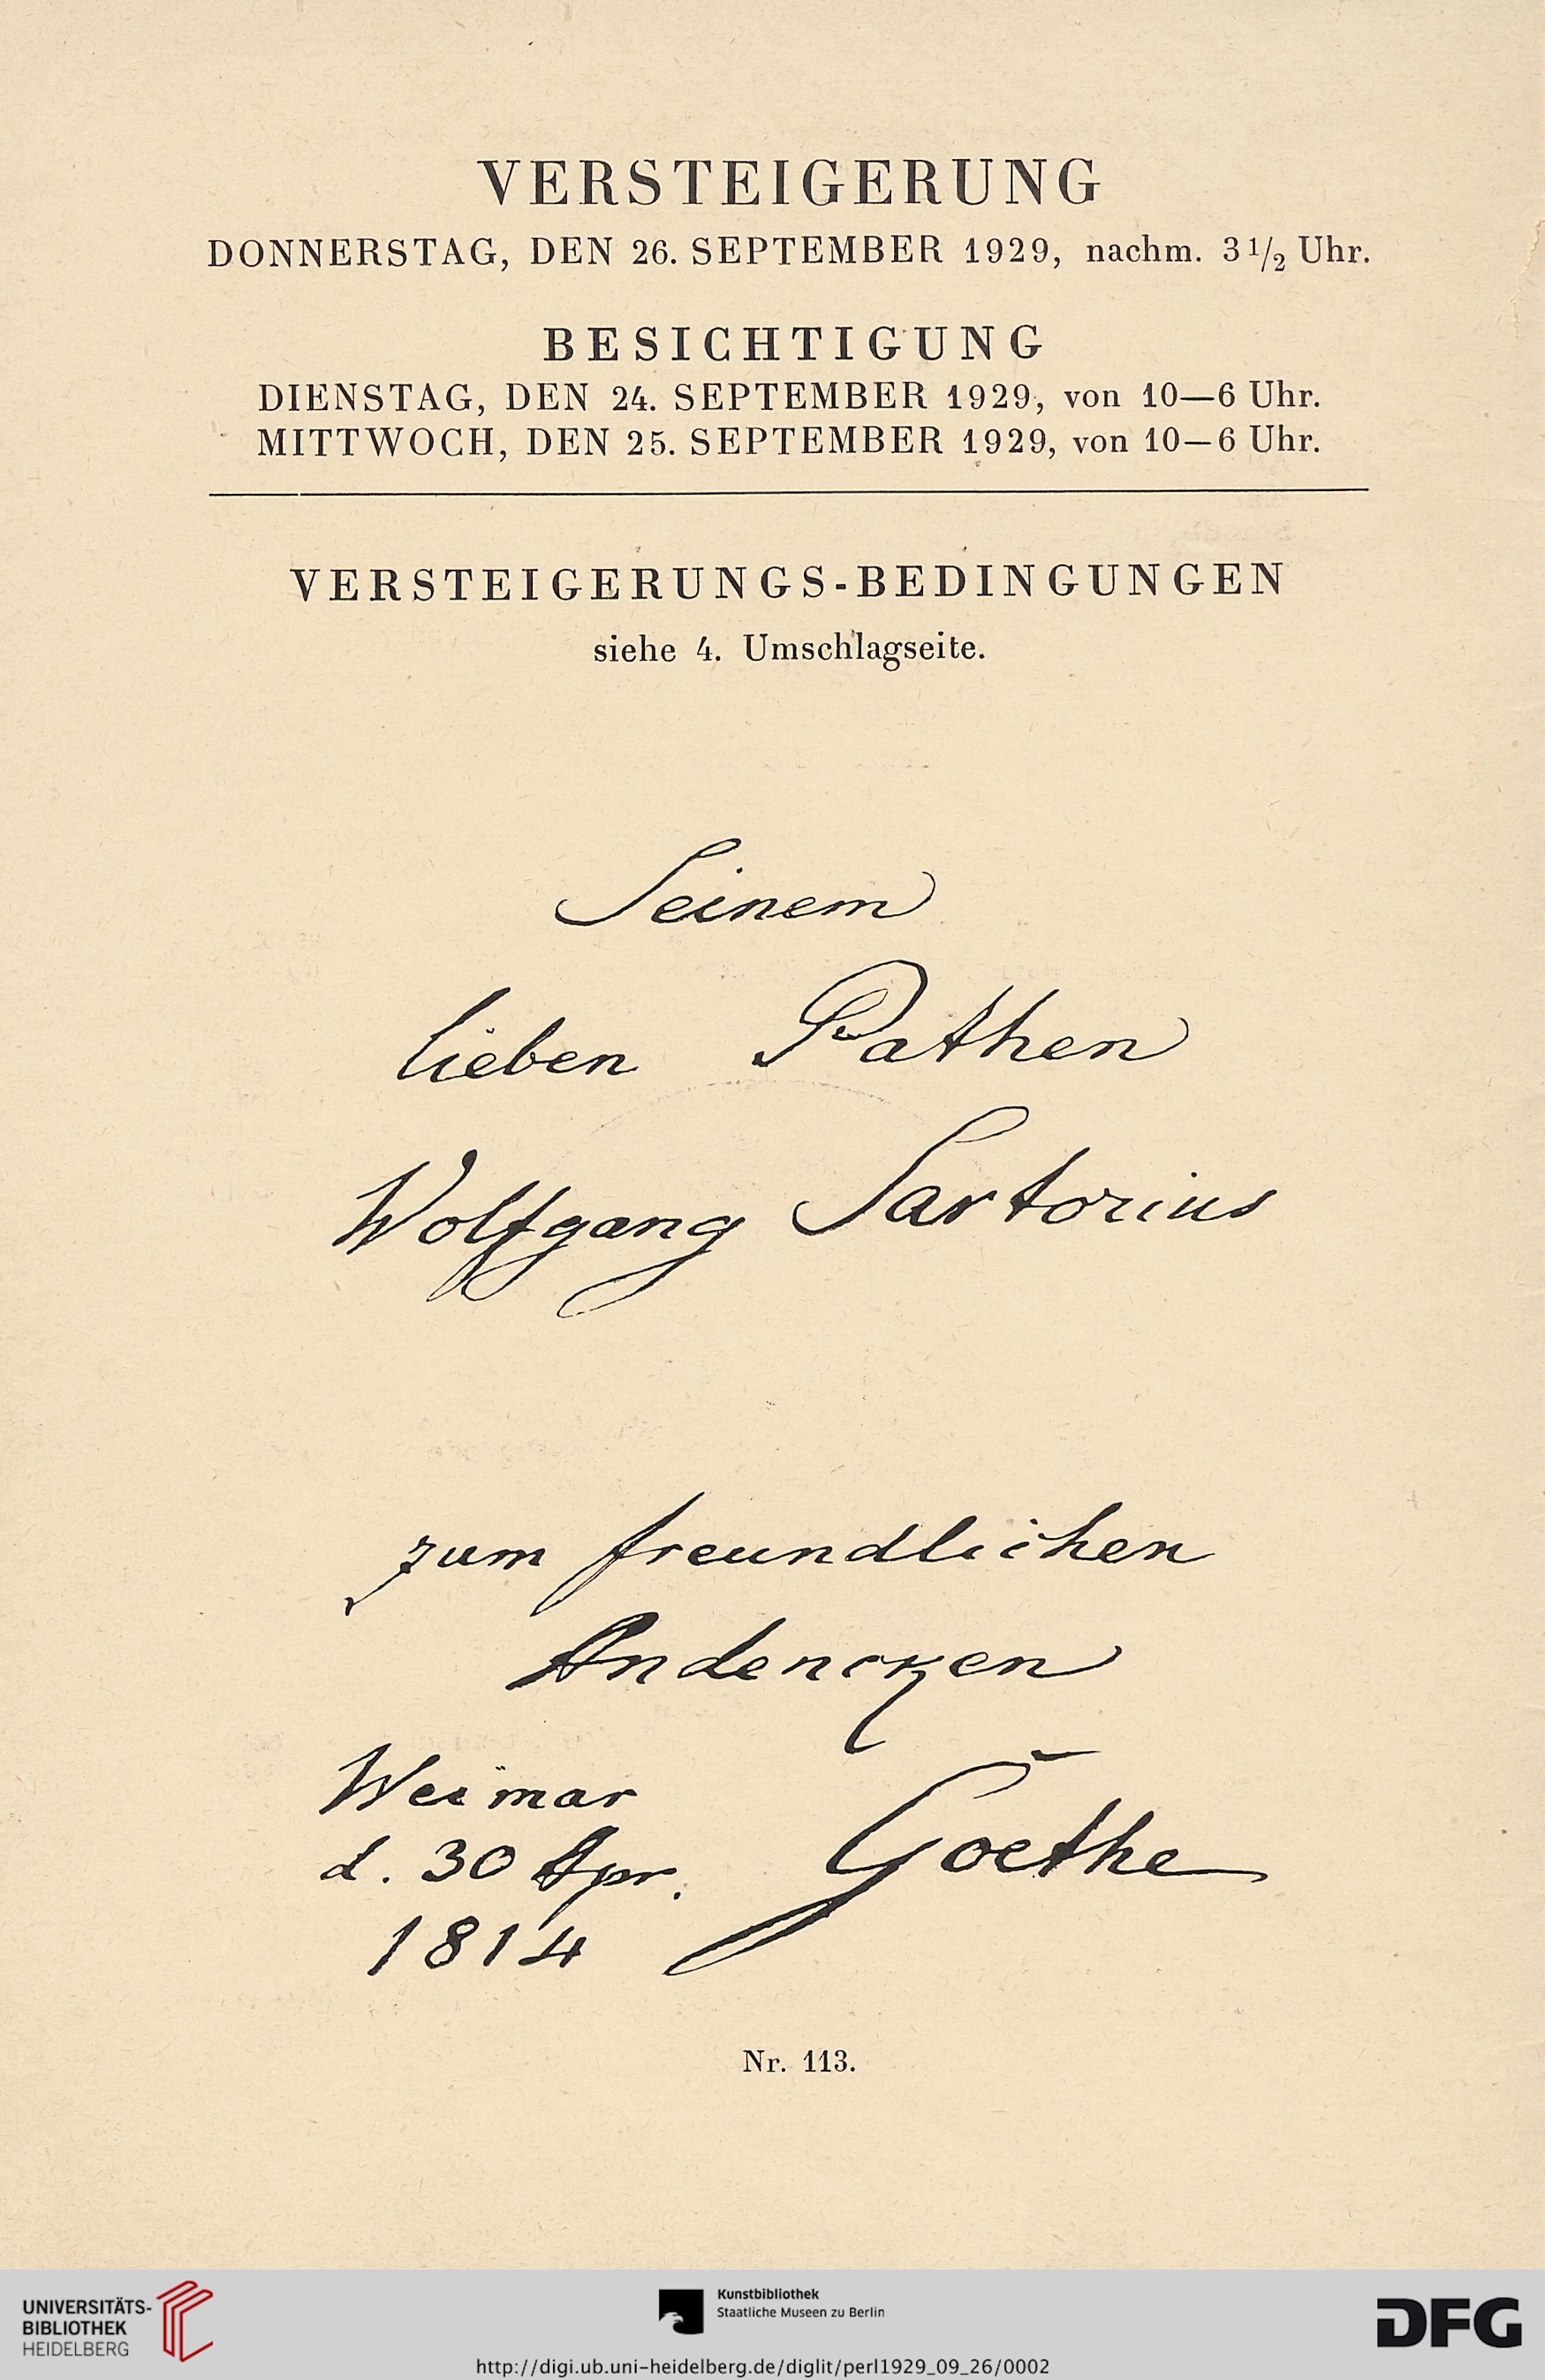 VERSTEIGERUNG
DONNERSTAG, DEN 26. SEPTEMBER 1929, nachm. 3 1/2 Uhr.
BESICHTIGUNG
DIENSTAG, DEN 24. SEPTEMBER 1929, von 10—6 Uhr.
MITTWOCH, DEN 25. SEPTEMBER 1929, von 10—6 Uhr.
VERSTEIGERUNGS-BEDINGUNGEN
siehe 4. Umschlagseite.
Seinem
lieben Pathen
Wolfgang Sartorius
zum freundlichen
Andencken
Weimar
d. 30 Apr. Goethe
1814
Nr. 113.
UNIVERSITÄTS-
BIBLIOTHEK
HEIDELBERG
Kunstbibliothek
Staatliche Museen zu Berlin
DFG
http://digi.ub.uni-heidelberg.de/diglit/perl1929_09_26/0002